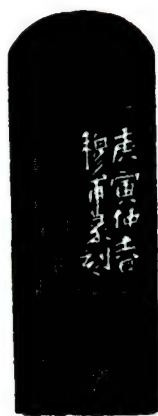 庚寅仲春
穆甫篆刻